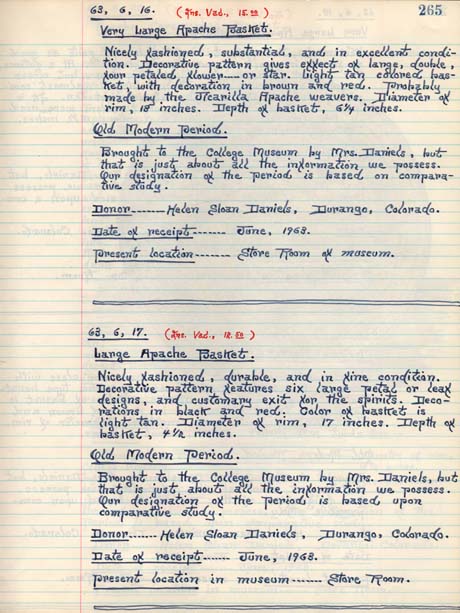 265
63, 6, 16. (Ins. Val., 15.00)
Very Large Apache Basket.
Nicely fashioned, substantial, and in excellent condi-
tion. Decorative pattern gives effect of large, double,
four petaled flower---- or star. Light tan colored bas-
ket, with decoration in brown and red. Probably
made by the Jicarilla Apache weavers. Diameter of
rim, 18 inches. Depth of basket, 6 1/4 inches.
Old Modern Period.
Brought to the College Museum by Mrs. Daniels, but
that is just about all the information we possess.
Our designation of the period is based on compara-
tive study.
Donor------- Helen Sloan Daniels, Durango, Colorado.
Date of receipt------- June, 1963.
Present location------- Store Room of museum.
63, 6, 17. (Ins. Val., 12.50)
Large Apache Basket.
Nicely fashioned, durable, and in fine condition.
Decorative pattern features six large petal or leaf
designs, and customary exit for the spirits. Deco-
rations in black and red. Color of basket is
light tan. Diameter of rim, 17 inches. Depth of
basket, 4 1/2 inches.
Old Modern Period.
Brought to the College Museum by Mrs. Daniels, but
that is just about all the information we possess.
Our designation of the period is based upon
comparative study.
Donor----- Helen Sloan Daniels, Durango, Colorado.
Date of receipt------ June, 1963.
Present location in museum------ Store Room.